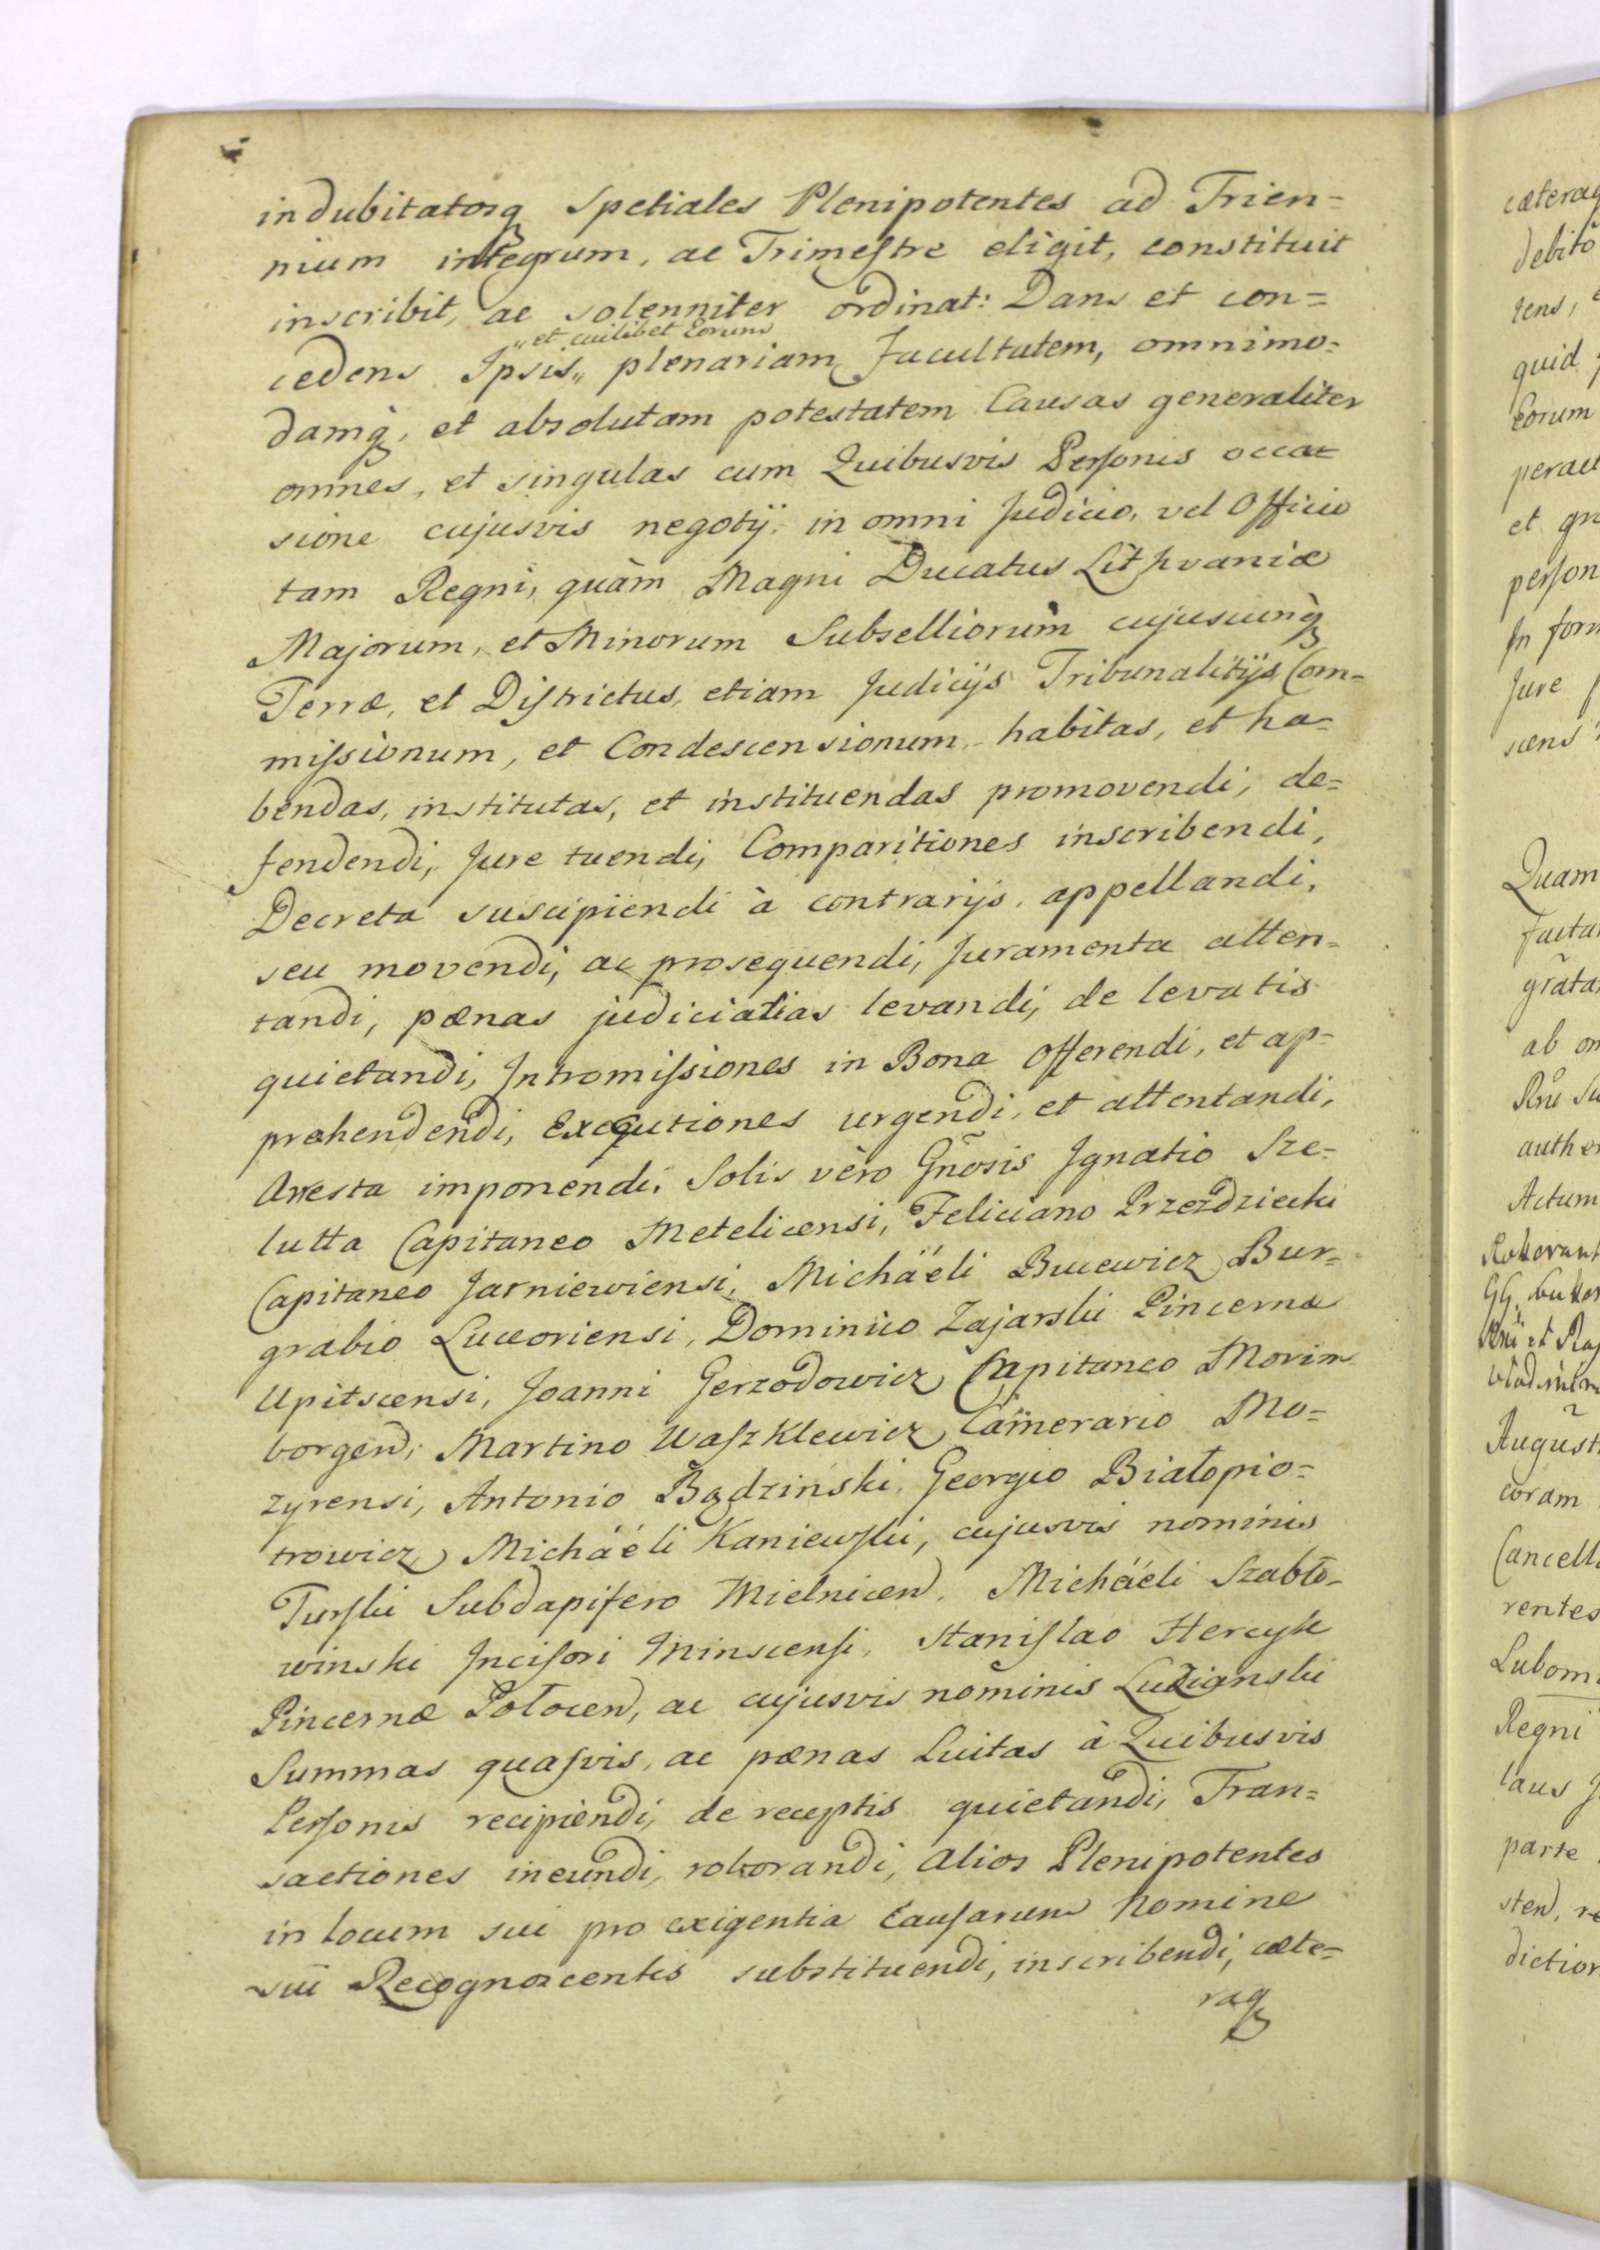 indubitatosq Spetiales Plenipotentes ad Trien=
nium integrum, ac Trimestre eligit, constituit
inscribit, ac solenniter ordinat: Dans et con=
„et cuilibet Eorum
cedens Ipsis„ plenariam Facultatem, omnimo=
damq, et absolutam potestatem Causas generaliter
omnes, et singulas cum Quibusvis Personis occa=
sione cujusvis negotij, in omni Judicio, vel Officio
tam Regni, quàm Magni Ducatus Lithvaniæ
Majorum, et Minorum Subselliorum cujuscunq
Terræ, et Districtus, etiam Judicijs Tribunalitijs Com=
missionum, et Condescensionum, habitas, et ha=
bendas, institutas, et instituendas promovendi, de=
fendendi, Jure tuendi, Comparitiones inscribendi,
Decreta suscipiendi à contrarijs, appellandi,
seu movendi, ac prosequendi, Juramenta atten=
tandi, pænas judiciatias levandi, de levatis
quietandi, Intromissiones in Bona Offerendi, et ap=
prehendendi, Exequtiones urgendi, et attentandi,
Arresta imponendi. Solis vèro Gñosis Ignatio Sze=
lutta Capitaneo Metelicensi, Feliciano Przezdziecki
Capitaneo Jarniewiensi, Michäéli Bucewicz Bur=
grabio Luceoriensi, Dominico Zajarski Pincernæ
Upitscensi, Joanni Gerzodowicz Capitaneo Morin
borgen, Martino Waszklewicz Camerario Mo=
zyrensi, Antonio Bądzinski, Georgio Białopio=
trowicz, Michäéli Kaniewski, cujusvis nominis
Turski Subdapifero Mielnicen, Michäéli Szabło=
winski Incisori Minscensi, Stanislao Hercyk
Pincernæ Połocen, ac cujusvis nominis Ludzianski
Summas quasvis, ac pænas luitas à Quibusvis
Personis recipiendi, de receptis quietandi, Tran=
sactiones ineundi, roborandi, Alios Plenipotentes
in locum sui pro exigentia Causarum Nomine
sui Recognoscentis substituendi, inscribendi, cæte=
raq